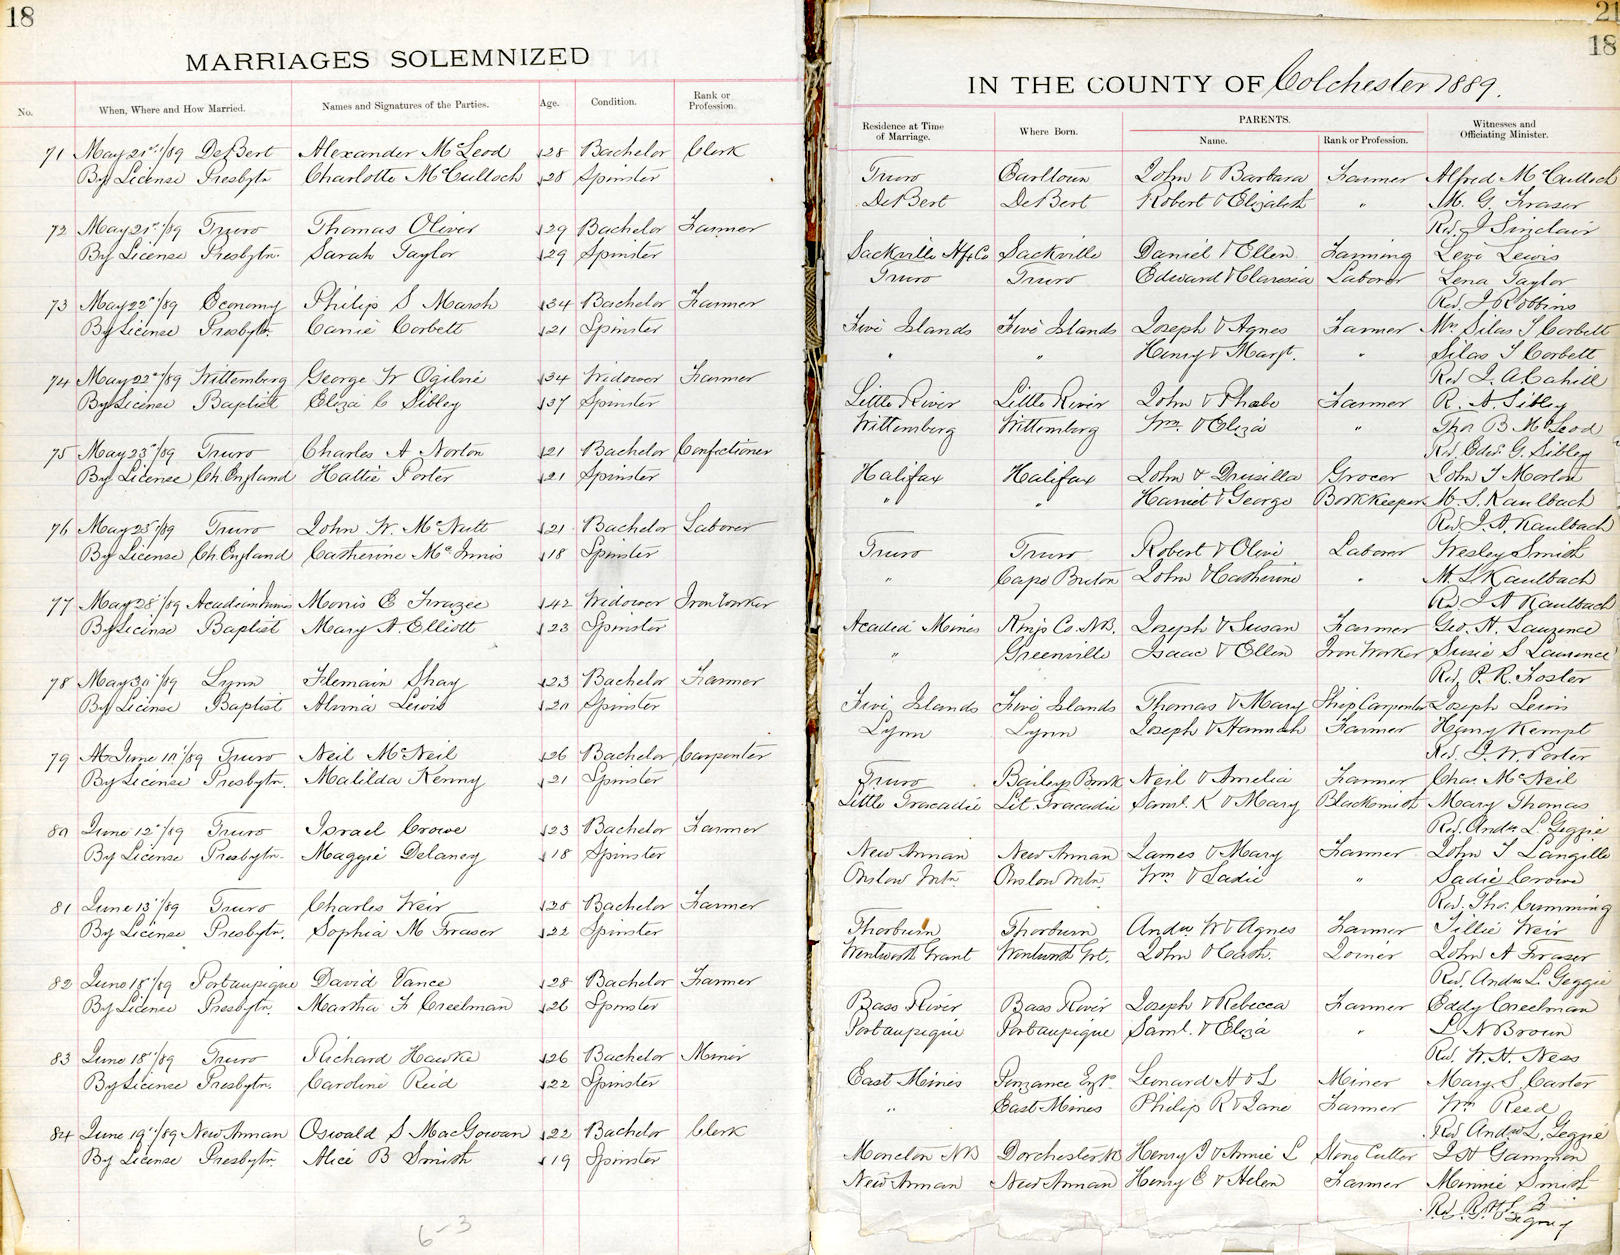 18
MARRIAGES SOLEMNIZED
No. When, Where and How Married. Names and Signatures of the Parties. Age. Condition. Rank or Profession.
71 May 21st/89 DeBert Alexander McLeod 28 Bachelor Clerk
By License Presbytn Charlotte McCulloch 28 Spinster
72 May 21st/89 Truro Thomas Oliver 29 Bachelor Farmer
By License Presbytn. Sarah Taylor 29 Spinster
73 May 22nd/89 Economy Philip S Marsh 34 Bachelor Farmer
By License Presbytn. Carrie Corbett 21 Spinster
74 May 22nd/89 Wittemberg George W Ogilvie 34 Widower Farmer
By License Baptist Eliza C Sibley 37 Spinster
75 May 23rd/89 Truro Charles A Norton 21 Bachelor Confectioner
By License Ch. England Hattie Porter 21 Spinster
76 May 25th/89 Truro John W. McNutt 21 Bachelor Laborer
By License Ch. England Catherine McInnis 18 Spinster
77 May 28th/89 Acadia Mines Morris E Frazee 42 Widower Iron Worker
By License Baptist Mary A. Elliott 23 Spinster
78 May 30th/89 Lynn Flemain Shay 23 Bachelor Farmer
By License Baptist Alvina Lewis 20 Spinster
79 June 11th/89 Truro Neil McNeil 26 Bachelor Carpenter
By License Presbytn. Matilda Kenny 21 Spinster
80 June 12th/89 Truro Israel Crowe 23 Bachelor Farmer
By License Presbytn. Maggie Delaney 18 Spinster
81 June 13th/89 Truro Charles Weir 28 Bachelor Farmer
By License Presbytn. Sophia M Fraser 22 Spinster
82 June 18th/89 Portaupique David Vance 28 Bachelor Farmer
By License Presbytn. Martha F Creelman 26 Spinster
83 June 18th/89 Truro Richard Hawke 26 Bachelor Miner
By License Presbytn. Caroline Reid 22 Spinster
84 June 19th/89 New Annan Oswald S MacGowan 22 Bachelor Clerk
By License Presbytn. Alice B Smith 19 Spinster
6-3
21
18
IN THE COUNTY OF Colchester 1889.
Residence at Time of Marriage. Where Born. PARENTS. Name. Rank or Profession. Witnesses and Officiating Minister.
Truro Earltown John & Barbara Farmer Alfred McCulloch
DeBert DeBert Robert & Elizabeth " M. G. Fraser
Rev. J Sinclair
Sackville Hfx Co Sackville Daniel & Ellen Farming Levi Lewis
Truro Truro Edward & Claresia Laborer Lena Taylor
Rev. J Robbins
Five Islands Five Islands Joseph & Agnes Farmer Mrs. Silas T Corbett
" " Henry & Margt. " Silas T Corbett
Rev J. A Cahill
Little River Little River John & Phebe Farmer R. A. Sibley
Wittemberg Wittemberg Wm. & Eliza " Thos B. McLeod
Rev. Edw. G. Sibley
Halifax Halifax John & Drusilla Grocer John T Morton
" " Harriet & George Bookkeeper M. S. Kaulbach
Rev J. A. Kaulbach
Truro Truro Robert & Olive Laborer Wesley Smith
" Cape Breton John & Catherine " M. S Kaulbach
Rev. J A Kaulbach
Acadia Mines Kings Co. N.B. Joseph & Susan Farmer Geo. H. Laurence
" Greenville Isaac & Ellen Iron Worker Susie S Laurence
Rev. P. R. Foster
Five Islands Five Islands Thomas & Mary Ship Carpenter Joseph Lewis
Lynn Lynn Joseph & Hannah Farmer Henry Kempt
Rev. J. W. Porter
Truro Baileys Brook Neil & Amelia Farmer Chas. McNeil
Little Tracadie Lit. Tracadie Saml. K & Mary Blacksmith Mary Thomas
Rev. Andw L. Geggie
New Annan New Annan James & Mary Farmer John T Langille
Onslow Mtn. Onslow Mtn. Wm & Sadie " Sadie Crowe
Rev. Thos. Cumming
Thorburn Thorburn Andw W & Agnes Farmer Tillie Weir
Wentworth Grant Wentworth Grt. John & Cath. Joiner John A Fraser
Rev. Andw L. Geggie
Bass River Bass River Joseph & Rebecca Farmer Eddy Creelman
Portaupique Portaupique Saml. & Eliza " L N Brown
Rev. W. H. Ness
East Mines Penzance Engd. Leonard H & L Miner Mary S. Carter
" East Mines Philip R & Jane Farmer Wm Reed
Rev Andw L. Geggie
Moncton NB Dorchester NB Henry J & Annie L Stone Cutter J H Gammon
New Annan New Annan Henry E & Helen Farmer Minnie Smith
Rev.